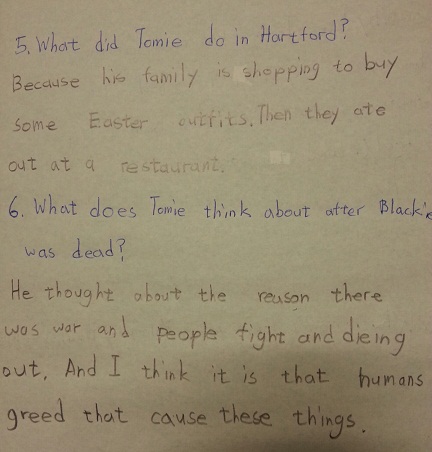 5. What did Tomie do in Hartford?
Because his family is shopping to buy
some Easter outfits. Then they ate
out at a restaurant.
6. What does Tomie think about after Blackie
was dead?
He thought about the reason there
was war and people fight and dieing
out. And I think it is that humans
greed that cause these things.